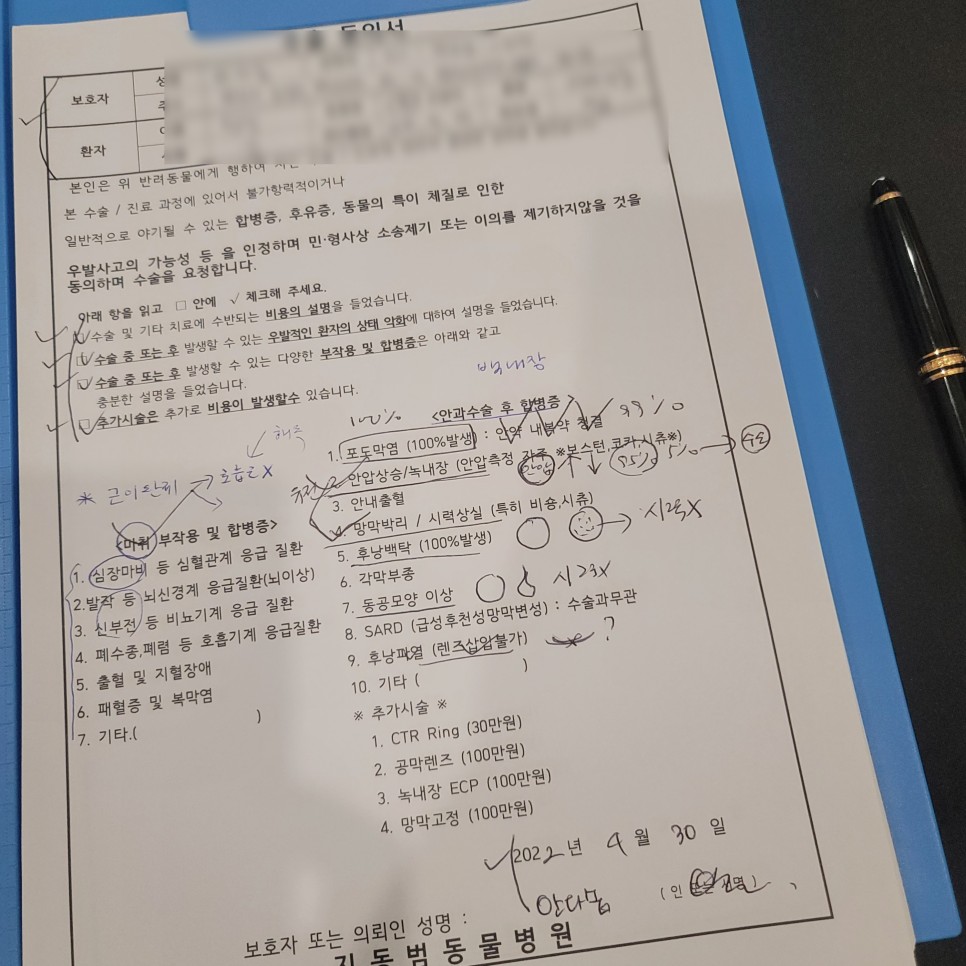 동의서
보호자
환자
본인은 위 반려동물에게 행하여
본 수술 / 진료 과정에 있어서 불가항력적이거나
일반적으로 야기될 수 있는 합병증, 후유증, 동물의 특이 체질로 인한
우발사고의 가능성 등 을 인정하며 민·형사상 소송제기 또는 이의를 제기하지않을 것을
동의하며 수술을 요청합니다.
아래 항을 읽고 □ 안에 √ 체크해 주세요.
수술 및 기타 치료에 수반되는 비용의 설명을 들었습니다.
수술 중 또는 후 발생할 수 있는 우발적인 환자의 상태 악화에 대하여 설명을 들었습니다.
수술 중 또는 후 발생할 수 있는 다양한 부작용 및 합병증은 아래와 같고
충분한 설명을 들었습니다.
추가시술은 추가로 비용이 발생할수 있습니다.
백내장
100%
<안과수술 후 합병증
99%
1. 포도막염 (100%발생) : 안약 내복약 청결
2. 안압상승/녹내장 (안압측정 자주 ※보스턴,코카,시츄※)
안압 ↑ ↓ 95% 5% → 수술
3. 안내출혈
4. 망막박리 / 시력상실 (특히 비숑,시츄)
시력X
5. 후낭백탁 (100%발생)
6. 각막부종
7. 동공모양 이상
시력X
8. SARD (급성후천성망막변성) : 수술과무관
9. 후낭파열 (렌즈삽입불가)
?
10. 기타 ( )
※ 추가시술 ※
1. CTR Ring (30만원)
2. 공막렌즈 (100만원)
3. 녹내장 ECP (100만원)
4. 망막고정 (100만원)
※ 근이완제 → 호흡근X
<마취 부작용 및 합병증>
1. 심장마비 등 심혈관계 응급 질환
2.발작 등 뇌신경계 응급질환(뇌이상)
3. 신부전 등 비뇨기계 응급 질환
4. 폐수종,폐렴 등 호흡기계 응급질환
5. 출혈 및 지혈장애
6. 패혈증 및 복막염
7. 기타.( )
2022 년 4 월 30 일
보호자 또는 의뢰인 성명 : 안다몸 ( 인 또는 서명 )
지동범동물병원